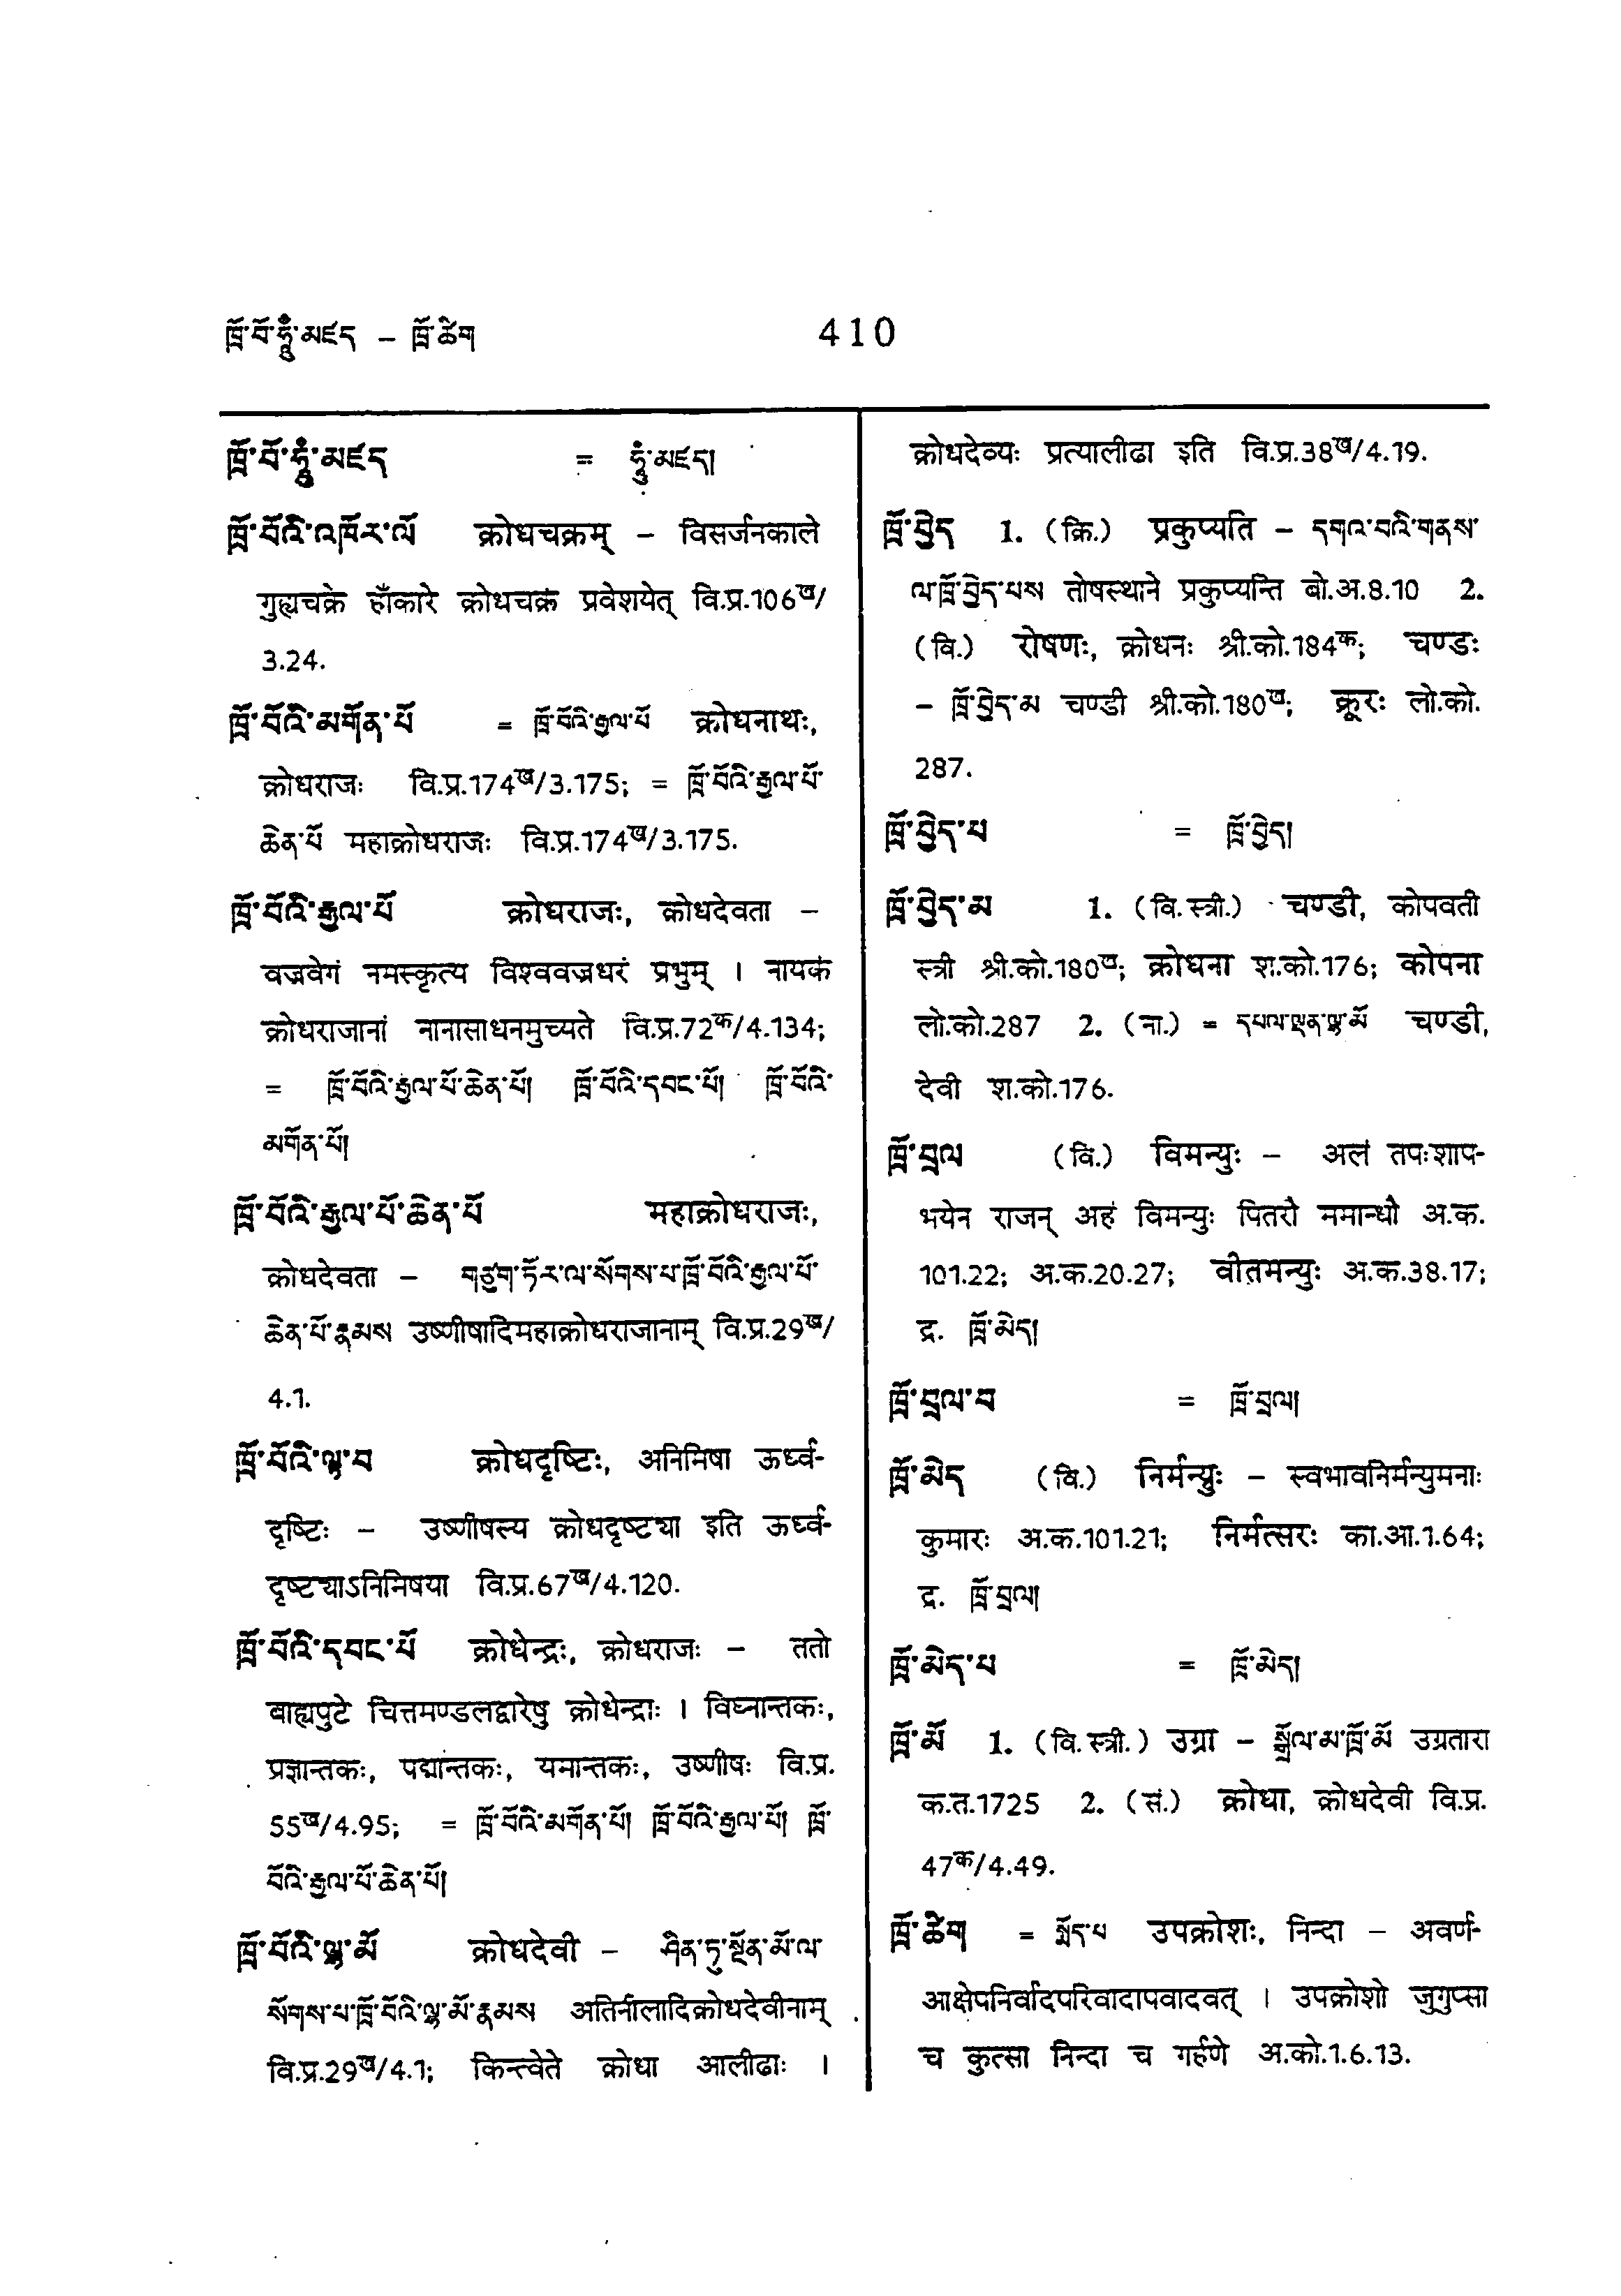 ཁྲོ་བོ་ཧཱུྃ་མཛད – ཁྲོ་ཚིག
410
ཁྲོ་བོ་ཧཱུྃ་མཛད = ཧཱུྃ་མཛད།
ཁྲོ་བོའི་འཁོར་ལོ क्रोधचक्रम् – विसर्जनकाले
गुह्यचक्रे हाँकारे क्रोधचक्रं प्रवेशयेत् वि.प्र.106ख/
3.24.
ཁྲོ་བོའི་མགོན་པོ = ཁྲོ་བོའི་རྒྱལ་པོ क्रोधनाथः,
क्रोधराजः वि.प्र.174ख/3.175; = ཁྲོ་བོའི་རྒྱལ་པོ་
ཆེན་པོ महाक्रोधराजः वि.प्र.174ख/3.175.
ཁྲོ་བོའི་རྒྱལ་པོ क्रोधराजः, क्रोधदेवता –
वज्रवेगं नमस्कृत्य विश्ववज्रधरं प्रभुम् । नायकं
क्रोधराजानां नानासाधनमुच्यते वि.प्र.72क/4.134;
= ཁྲོ་བོའི་རྒྱལ་པོ་ཆེན་པོ། ཁྲོ་བོའི་དབང་པོ། ཁྲོ་བོའི་
མགོན་པོ།
ཁྲོ་བོའི་རྒྱལ་པོ་ཆེན་པོ महाक्रोधराजः,
क्रोधदेवता – གཙུག་ཏོར་ལ་སོགས་པ་ཁྲོ་བོའི་རྒྱལ་པོ་
ཆེན་པོ་རྣམས उष्णीषादिमहाक्रोधराजानाम् वि.प्र.29ख/
4.1.
ཁྲོ་བོའི་ལྟ་བ क्रोधदृष्टिः, अनिमिषा ऊर्ध्व-
दृष्टिः – उष्णीषस्य क्रोधदृष्ट्या इति ऊर्ध्व-
दृष्ट्याऽनिमिषया वि.प्र.67ख/4.120.
ཁྲོ་བོའི་དབང་པོ क्रोधेन्द्रः, क्रोधराजः – ततो
बाह्यपुटे चित्तमण्डलद्वारेषु क्रोधेन्द्राः । विघ्नान्तकः,
प्रज्ञान्तकः, पद्मान्तकः, यमान्तकः, उष्णीषः वि.प्र.
55ख/4.95; = ཁྲོ་བོའི་མགོན་པོ། ཁྲོ་བོའི་རྒྱལ་པོ། ཁྲོ་
བོའི་རྒྱལ་པོ་ཆེན་པོ།
ཁྲོ་བོའི་ལྷ་མོ क्रोधदेवी – ཤིན་ཏུ་སྔོན་མོ་ལ་
སོགས་པ་ཁྲོ་བོའི་ལྷ་མོ་རྣམས अतिनीलादिक्रोधदेवीनाम्
वि.प्र.29ख/4.1; किन्त्वेते क्रोधा आलीढाः ।
क्रोधदेव्यः प्रत्यालीढा इति वि.प्र.38ख/4.19.
ཁྲོ་བྱེད 1. (क्रि.) प्रकुप्यति – དགའ་བའི་གནས་
ལ་ཁྲོ་བྱེད་པས तोषस्थाने प्रकुप्यन्ति बो.अ.8.10 2.
(वि.) रोषणः, क्रोधनः श्री.को.184क; चण्डः
– ཁྲོ་བྱེད་མ चण्डी श्री.को.180ख; क्रूरः लो.को.
287.
ཁྲོ་བྱེད་པ = ཁྲོ་བྱེད།
ཁྲོ་བྱེད་མ 1. (वि.स्त्री.) चण्डी, कोपवती
स्त्री श्री.को.180ख; क्रोधना श.को.176; कोपना
लो.को.287 2. (ना.) = དཔལ་ལྡན་ལྷ་མོ चण्डी,
देवी श.को.176.
ཁྲོ་བྲལ (वि.) विमन्युः – अलं तपःशाप-
भयेन राजन् अहं विमन्युः पितरौ ममान्धौ अ.क.
101.22; अ.क.20.27; वीतमन्युः अ.क.38.17;
द्र. ཁྲོ་མེད།
ཁྲོ་བྲལ་བ = ཁྲོ་བྲལ།
ཁྲོ་མེད (वि.) निर्मन्युः – स्वभावनिर्मन्युमनाः
कुमारः अ.क.101.21; निर्मत्सरः का.आ.1.64;
द्र. ཁྲོ་བྲལ།
ཁྲོ་མེད་པ = ཁྲོ་མེད།
ཁྲོ་མོ 1. (वि.स्त्री.) उग्रा – སྒྲོལ་མ་ཁྲོ་མོ उग्रतारा
क.त.1725 2. (सं.) क्रोधा, क्रोधदेवी वि.प्र.
47क/4.49.
ཁྲོ་ཚིག = སྨོད་པ उपक्रोशः, निन्दा – अवर्ण-
आक्षेपनिर्वादपरिवादापवादवत् । उपक्रोशो जुगुप्सा
च कुत्सा निन्दा च गर्हणे अ.को.1.6.13.